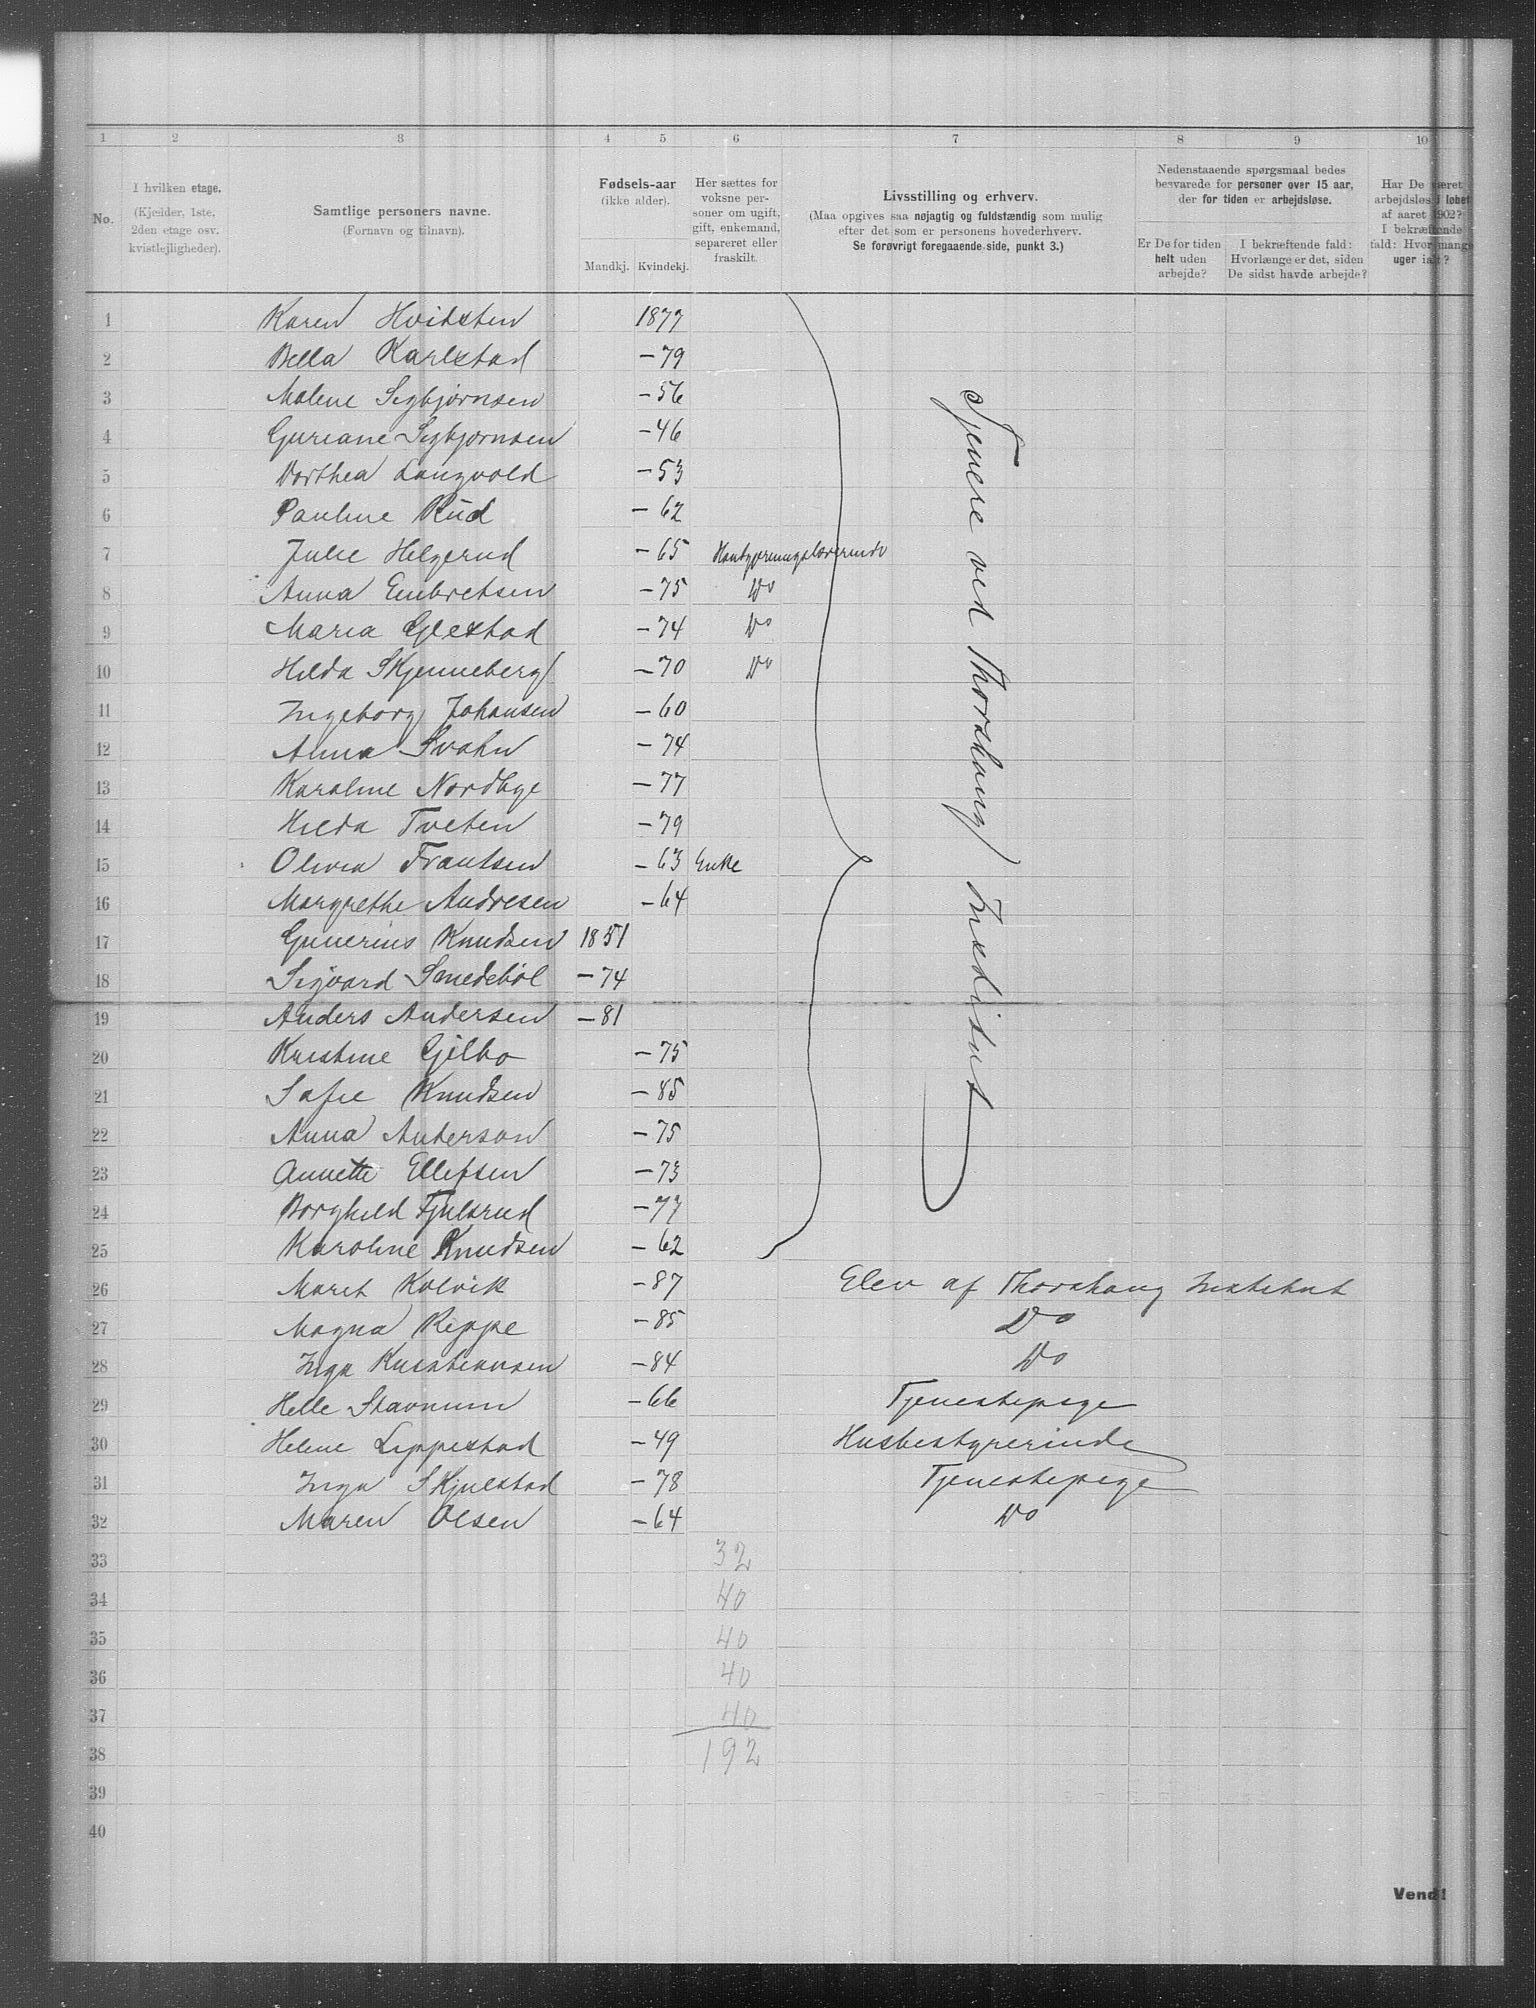 1 2 3 4 5 6 7 8 9 10
No.
I hvilken etage.
(Kjælder, 1ste,
2den etage osv.
kvistlejligheder).
Samtlige personers navne.
(Fornavn og tilnavn).
Fødsels-aar
(ikke alder).
Mandkj. Kvindekj.
Her sættes for
voksne per-
soner om ugift,
gift, enkemand,
separeret eller
fraskilt.
Livsstilling og erhverv.
(Maa opgives saa nøjagtig og fuldstændig som mulig
efter det som er personens hovederhverv.
Se forøvrigt foregaaende side, punkt 3.)
Nedenstaaende spørgsmaal bedes
besvarede for personer over 15 aar,
der for tiden er arbejdsløse.
Er De for tiden
helt uden
arbejde?
I bekræftende fald:
Hvorlænge er det, siden
De sidst havde arbejde?
Har De været
arbejdsløs i løbet
af aaret 1902?
I bekræftende
fald: Hvor mange
uger ialt?
1 Karen Hvitsten 1877
2 Bella Karlstad -79
3 Malene Sigbjørnsen -56
4 Guriane Sigbjørnsen -46
5 Dorthea Langvold -53
6 Pauline Rud -62
7 Julie Helgerud -65 Haandgjerningslærerinde
8 Anna Embretsen -75 Do
9 Maria Glestad -74 Do
10 Hilda Skjenneberg -70 Do
11 Ingeborg Johansen -60
12 Anna Svahn -74
13 Karoline Nordbye -77
14 Hilda Tveten -79
15 Olivia Frantsen -63 Enke
16 Margrethe Andresen -64
17 Gunerius Knudsen 1851
18 Sigvard Smedebøl -74
19 Anders Andersen -81
20 Kristine Gjelbo -75
21 Sofie Knudsen -85
22 Anna Anderson -75
23 Annette Ellefsen -73
24 Borghild Fjulsrud -77
25 Karoline Knudsen -62
Tjenere ved Thorshaug Institut
26 Maret Kolvik -87 Elev af Thorshaug Institut
27 Magna Reppe -85 Do
28 Inga Kristiansen -84 Do
29 Helle Stavnum -66 Tjenestepige
30 Helene Lippestad -49 Husbestyrerinde
31 Inga Skjulstad -78 Tjenestepige
32 Maren Olsen -64 Do
33 32
34 40
35 40
36 40
37 40
38 192
39
40
Vend!